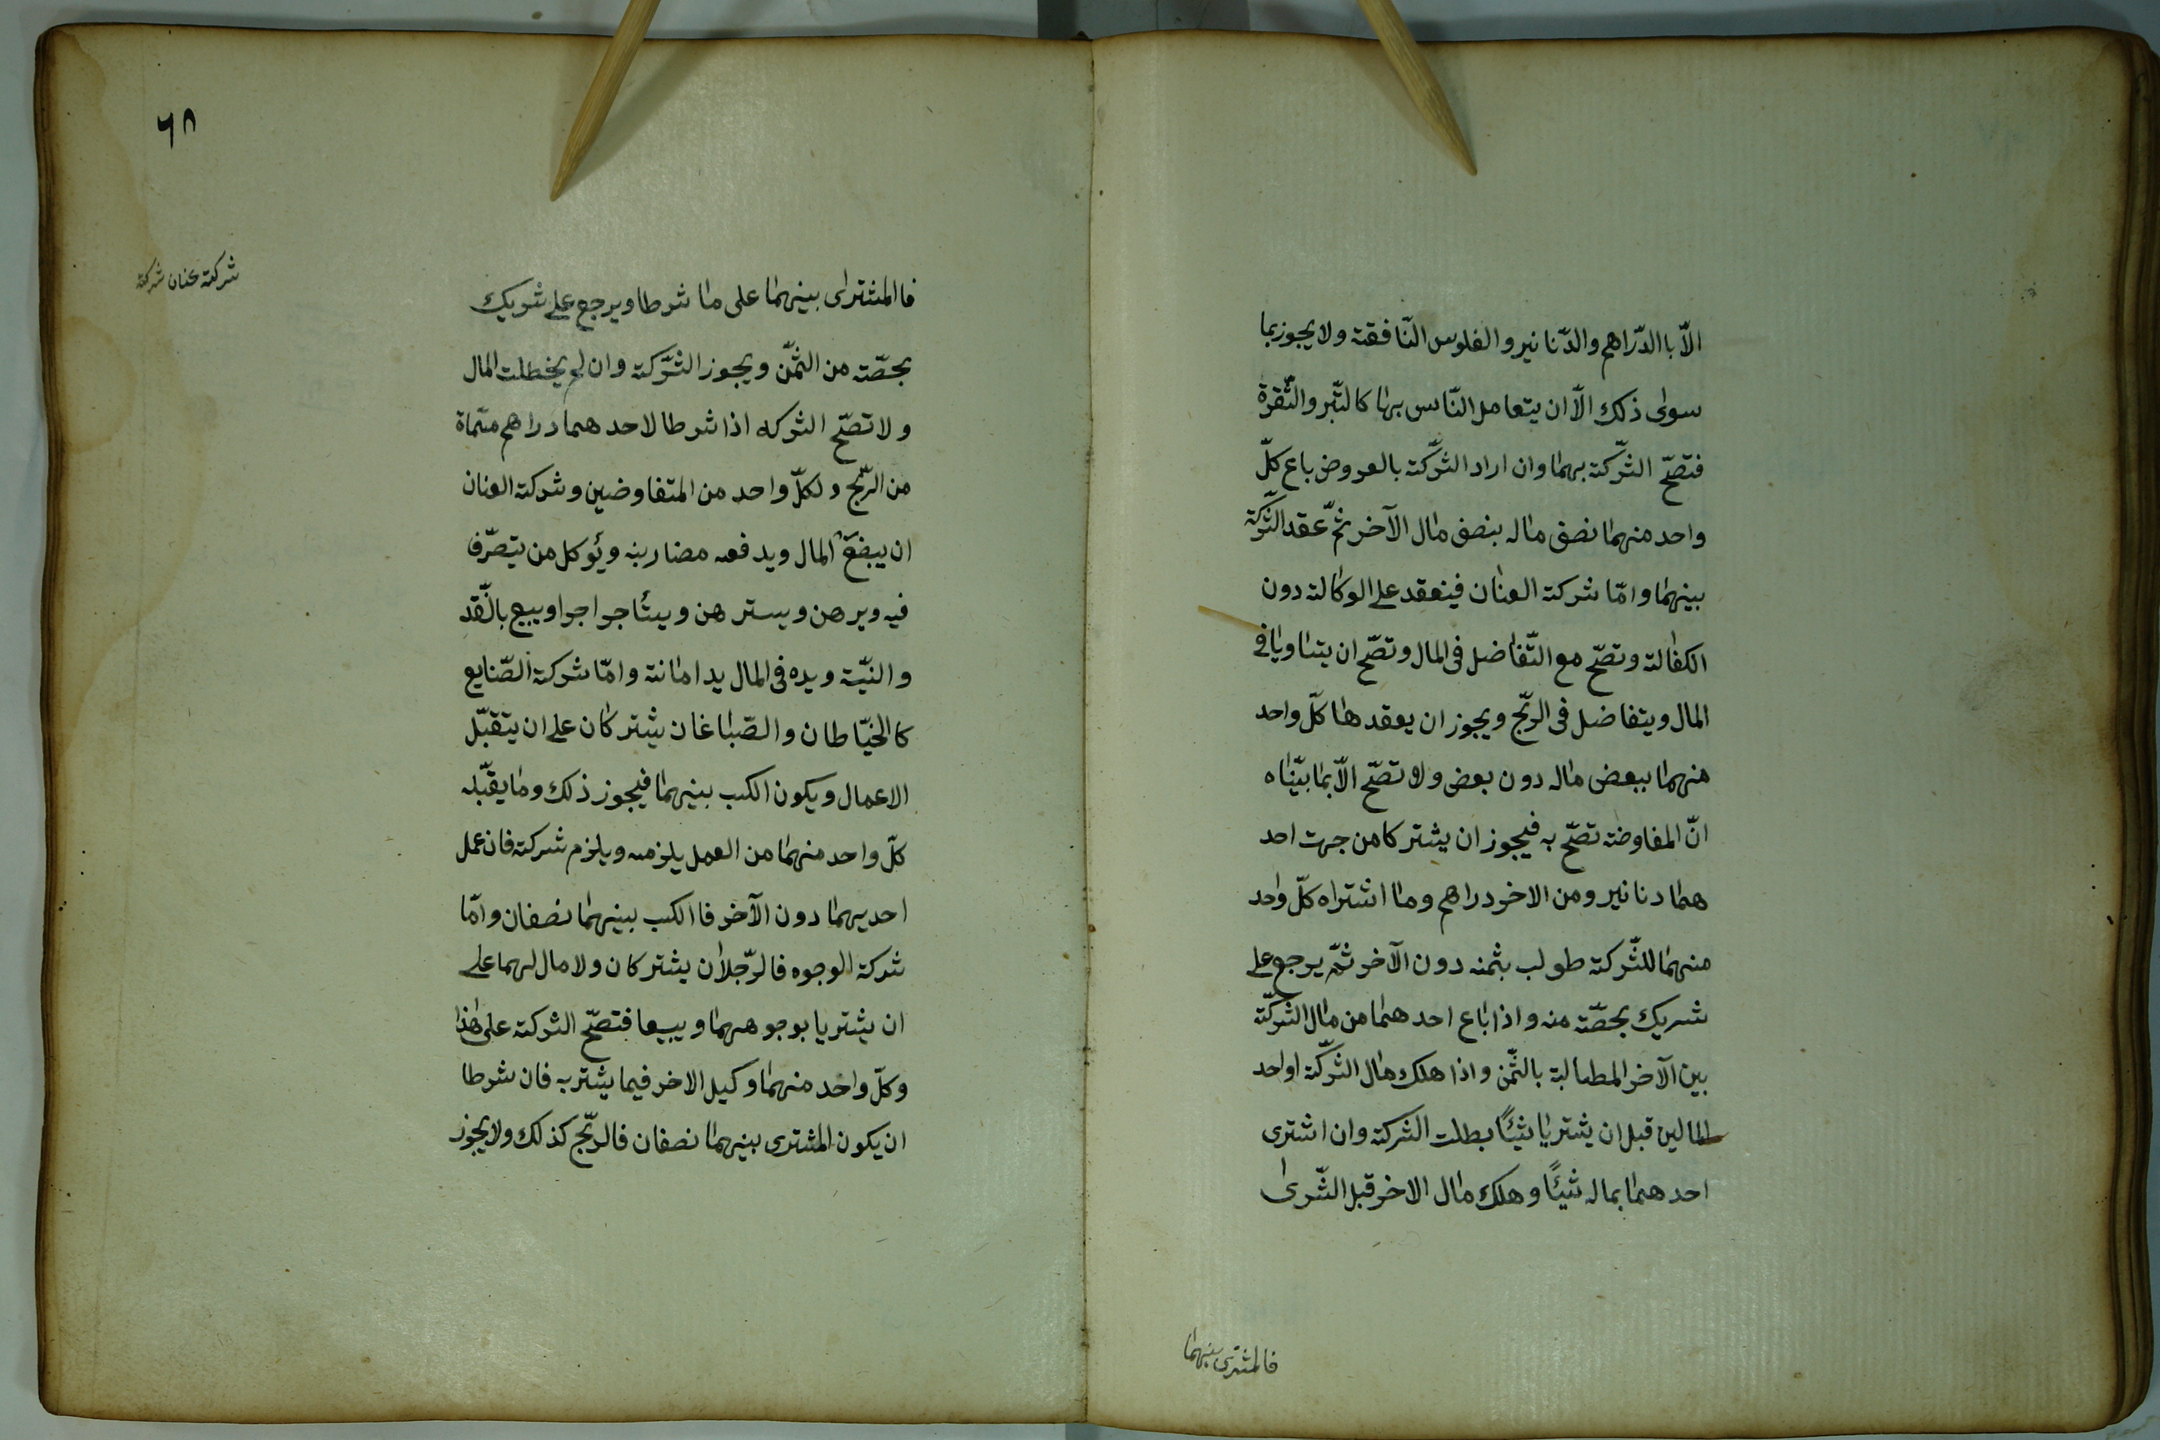 الّا باالدّراهم والدّنانير والفلوس النّافقة ولا يجوز بما
سوى ذلك الّا ان يتعامل النّاس بها كالتّبر والنّقرة
فتصحّ الشّركة بهما وان اراد الشّركة بالعروض باع كلّ
واحد منهما نصف ماله بنصف مال الآخر ثمّ عقد الشّركة
بينهما وامّا شركة العنان فينعقد على الوكالة دون
الكفالة وتصحّ مع التّفاضل فى المال وتصحّ ان يتساويا فى
المال ويتفاضل فى الرّبح ويجوز ان يعقدها كلّ واحد
منهما ببعض ماله دون بعض ولا تصحّ الّا بما بيّناه
انّ المفاوضة تصحّ به فيجوز ان يشتركا من جهت احد
هما دنانير ومن الاخر دراهم وما اشتراه كلّ واحد
منهما للشّركة طولب بثمنه دون الآخر ثمّ يرجع على
شريك بحصّته منه واذا باع احد هما من مال الشّركة
بين الآخر المطالبة بالثّمن واذا هلك مال الشّركة او احد
المالين قبل ان يشتريا شيئًا بطلت الشركة وان اشترى
احد هما بماله شيئًا وهلك مال الاخر قبل الشّرى
فالمشترى بينهما
٦٨
شركة عنان شركة
فاالمشترى بينهما على ما شرطا ويرجع على شريك
بحصّته من الثمّن ويجوز الشّركة وان لم يخطلت المال
ولا تصحّ الشركه اذا شرطا لاحد هما دراهم مسّماة
من الرّبح ولكلّ واحد من المتفاوضين وشركة العنان
ان يبضع المال ويدفعه مضاربنه ويؤكل من يتصرّف
فيه ويرهن ويسترهن ويستأجر اجرا ويبيع بالنّقد
والنيّة ويده فى المال يد امانة وامّا شركة الصّنايع
كالخيّاطان والصّباغان يشتركان على ان يتقبّل
الاعمال ويكون الكسب بينهما فيجوز ذلك وما يقبّله
كلّ واحد منهما من العمل يلزمه ويلزم شركته فان عمل
احديهما دون الآخر فاالكسب بينهما نصفان وامّا
شركة الوجوه فالرّجلان يشتركان ولا مال لهما على
ان يشتريا بوجوههما ويبيعا فتصحّ الشركة على هذا
وكلّ واحد منهما وكيل الاخر فيما يشتربه فان شرطا
ان يكون المشترى بينهما نصفان فالربّح كذلك ولا يجوز